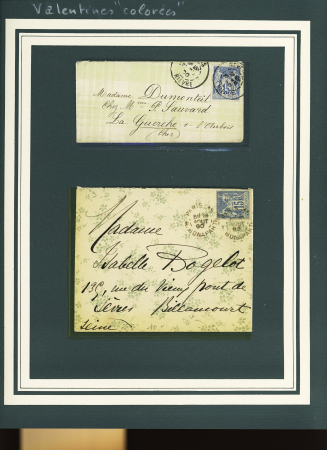 Valentines "colorées"
Madame Dumonteil
Chez Mme P. Sauvard
La Guerche s. l'Aubois
Cher
NIEVRE
15
Madame
Isabelle Bogelot
139, rue du Vieux pont de
Sèvres Billancourt
Seine
PARIS
AOUT
15